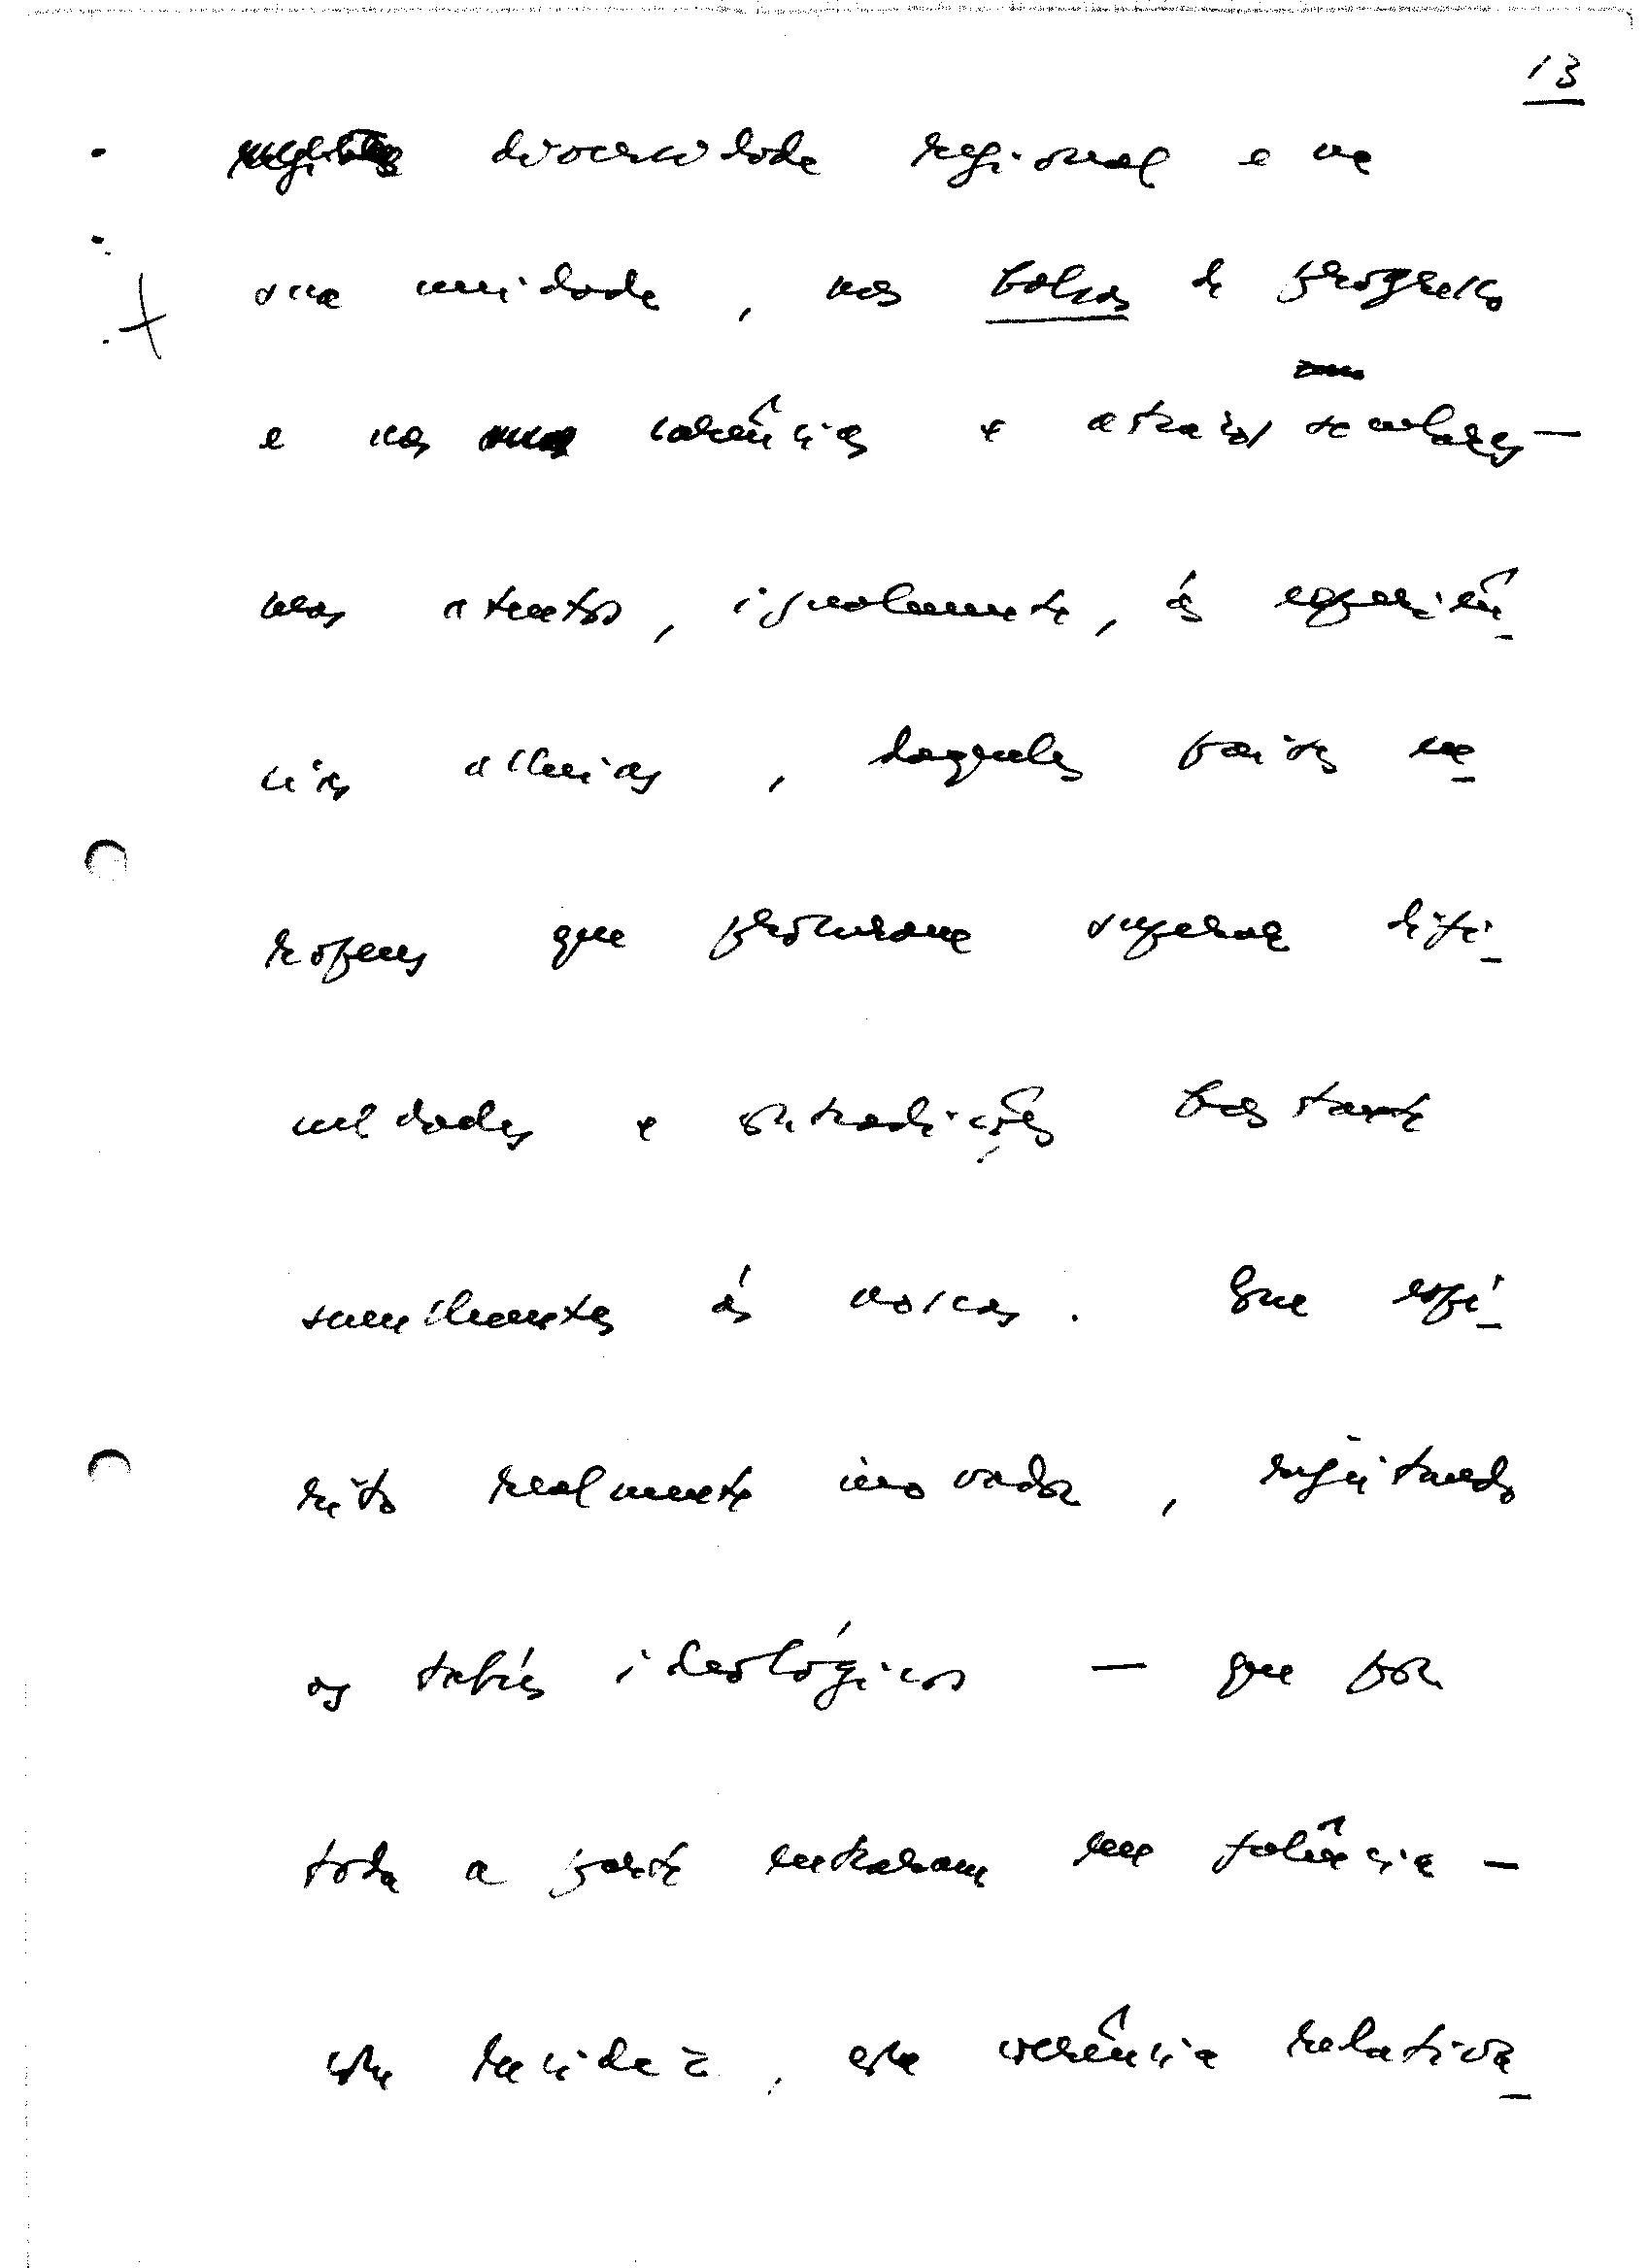 13
diversidade regional e na
sua unidade, nas bolsas de progresso
e nas carências e atrasos seculares —
mas atentos, igualmente, às experiên-
cias alheias, daqueles países es-
que procuram superar difi-
culdades e contradições bastante
semelhantes às nossas. Que espí-
rito realmente inovador, rejeitando
os tabús ideológicos — que por
toda a parte entraram em falência —
com lucidez, esta coerência relativa